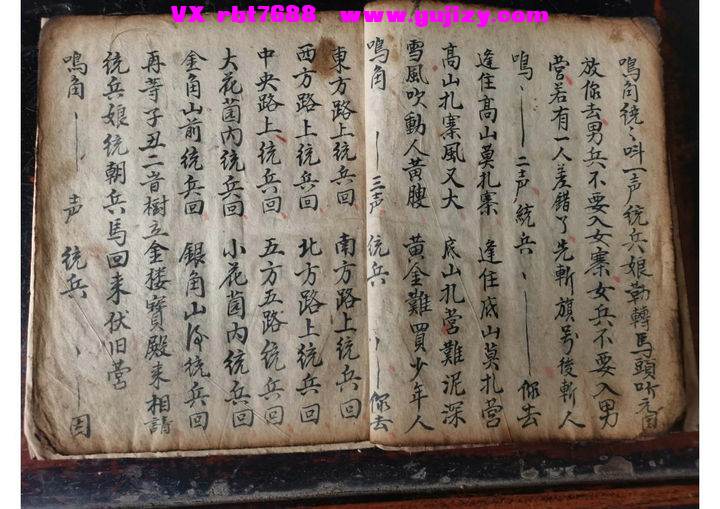 VX rbt7688 www.gujizy.com
鳴角統〻呌一声統兵娘勒轉馬頭听
放你去男兵不要入女寨女兵不要入男
营若有一人差錯了先斬旗号後斬人
鳴〻 二声統兵〻 你去
逢住高山莫扎寨 逢住底山莫扎营
高山扎寨風又大 底山扎营難泥深
雪風吹動人黄腰 黄金難買少年人
鳴角 三声 統兵 你去
東方路上統兵回 南方路上統兵回
西方路上統兵回 北方路上統兵回
中央路上統兵回 五方五路統兵回
大花园内統兵回 小花园内統兵回
金角山前統兵回 銀角山 統兵回
再等子丑二音樹立金楼寶殿来相請
統兵娘統朝兵馬回来伏旧营
鳴角 声 統兵〻 回